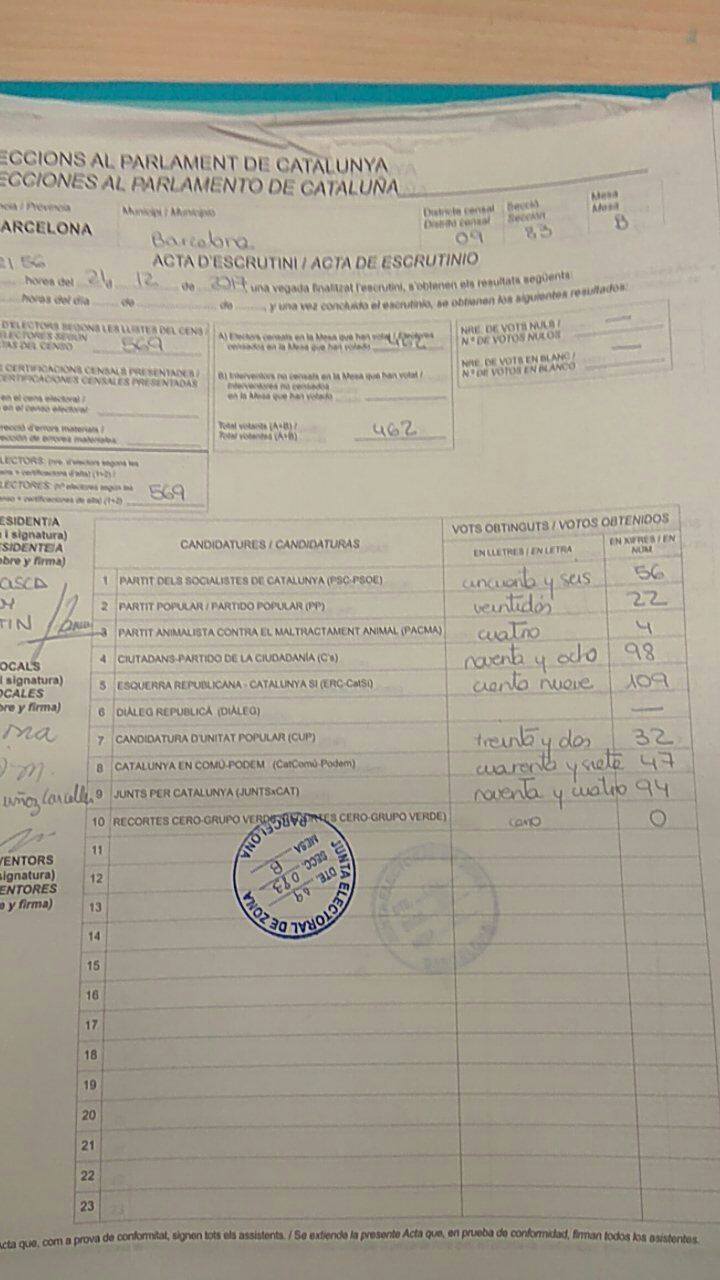 ECCIONS AL PARLAMENT DE CATALUNYA
ECCIONES AL PARLAMENTO DE CATALUÑA
ncia / Provincia Municipi / Municipio Districte censal Secció Mesa
Distrito censal Sección Mesa
ARCELONA Barcelona 09 83 B
ACTA D'ESCRUTINI / ACTA DE ESCRUTINIO
21 56
hores del 21 d 12 de 2017, una vegada finalitzat l'escrutini, s'obtenen els resultats següents:
horas del día de de , y una vez concluido el escrutinio, se obtienen los siguientes resultados:
D'ELECTORS SEGONS LES LLISTES DEL CENS /
ELECTORES SEGÚN
TAS DEL CENSO 569
CERTIFICACIONS CENSALS PRESENTADES /
CERTIFICACIONES CENSALES PRESENTADAS
en el cens electoral /
en el censo electoral:
rrecció d'errors materials /
rección de errores materiales:
A) Electors censats en la Mesa que han votat / Electores
censados en la Mesa que han votado 462
B) Interventors no censats en la Mesa que han votat /
Interventores no censados
en la Mesa que han votado
Total votants (A+B) /
Total votantes (A+B) 462
NRE. DE VOTS NULS / —
N.º DE VOTOS NULOS
NRE. DE VOTS EN BLANC / —
N.º DE VOTOS EN BLANCO
LECTORS: (nre. d'electors segons les
ens + certificacions d'alta) (1+2) /
LECTORES: (nº electores según las
enso + certificaciones de alta) (1+2) 569
ESIDENT/A
i signatura)
ESIDENTE/A
bre y firma)
ASCA
Y
TIN
OCALS
i signatura)
OCALES
bre y firma)
ma
m.
uñoz
VENTORS
signatura)
ENTORES
e y firma)
CANDIDATURES / CANDIDATURAS VOTS OBTINGUTS / VOTOS OBTENIDOS
EN LLETRES / EN LETRA EN XIFRES / EN NÚM
1 PARTIT DELS SOCIALISTES DE CATALUNYA (PSC-PSOE) cincuenta y seis 56
2 PARTIT POPULAR / PARTIDO POPULAR (PP) veintidós 22
3 PARTIT ANIMALISTA CONTRA EL MALTRACTAMENT ANIMAL (PACMA) cuatro 4
4 CIUTADANS-PARTIDO DE LA CIUDADANÍA (C's) noventa y ocho 98
5 ESQUERRA REPUBLICANA - CATALUNYA SÍ (ERC-CatSí) ciento nueve 109
6 DIÀLEG REPUBLICÀ (DIÀLEG) —
7 CANDIDATURA D'UNITAT POPULAR (CUP) treinta y dos 32
8 CATALUNYA EN COMÚ-PODEM (CatComú-Podem) cuarenta y siete 47
9 JUNTS PER CATALUNYA (JUNTSxCAT) noventa y cuatro 94
10 RECORTES CERO-GRUPO VERDE (RECORTES CERO-GRUPO VERDE) cero 0
11
12
13
14
15
16
17
18
19
20
21
22
23
JUNTA ELECTORAL DE ZONA
BARCELONA
DTE. 09
SECC. 083
MESA B
Acta que, com a prova de conformitat, signen tots els assistents. / Se extiende la presente Acta que, en prueba de conformidad, firman todos los asistentes.